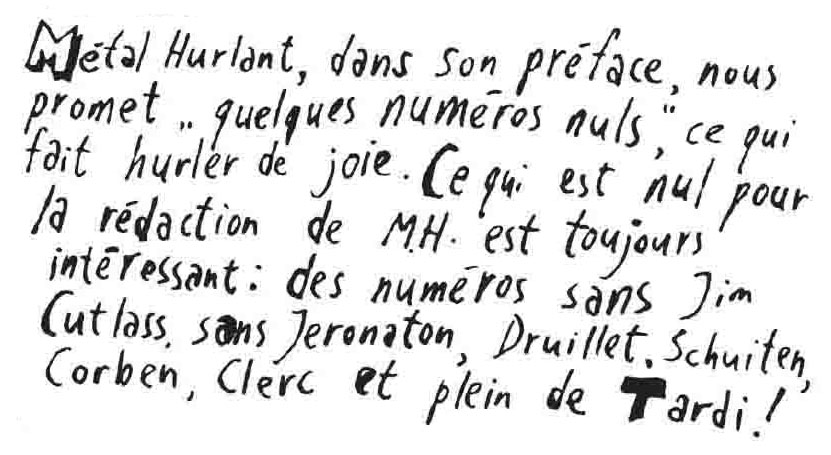 Métal Hurlant, dans son préface, nous
promet „quelques numéros nuls," ce qui
fait hurler de joie. Ce qui est nul pour
la rédaction de M.H. est toujours
intéressant: des numéros sans Jim
Cutlass, sans Jeronaton, Druillet, Schuiten,
Corben, Clerc et plein de Tardi!